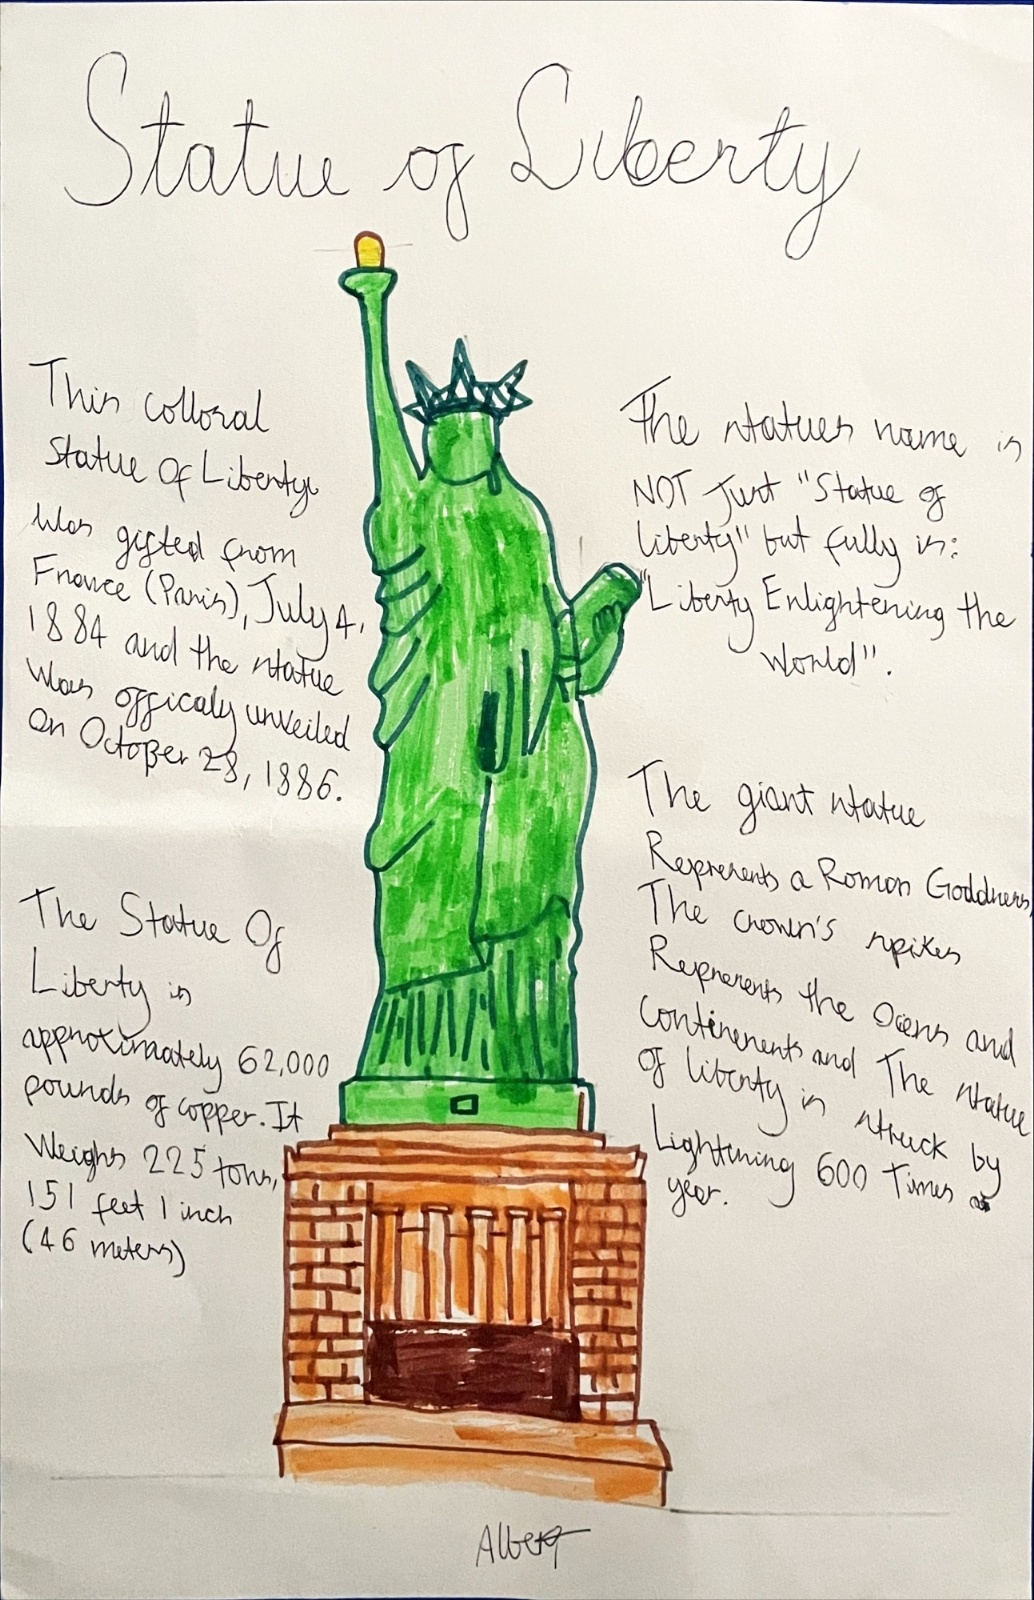 Statue of Liberty
This collosal
Statue Of Liberty
was gifted from
France (Paris), July 4,
1884 and the statue
was officaly unveiled
on October 28, 1886.
The Statue Of
Liberty is
approximately 62,000
pounds of copper. It
Weighs 225 tons,
151 feet 1 inch
(46 meters)
The statues name is
NOT Just "Statue of
liberty" but fully is:
"Liberty Enlightening the
World".
The giant statue
Represents a Roman Goddness,
The crown's spikes
Represents the Ocens and
continenents and The statue
of liberty is struck by
Lightining 600 Times a
year.
Albert